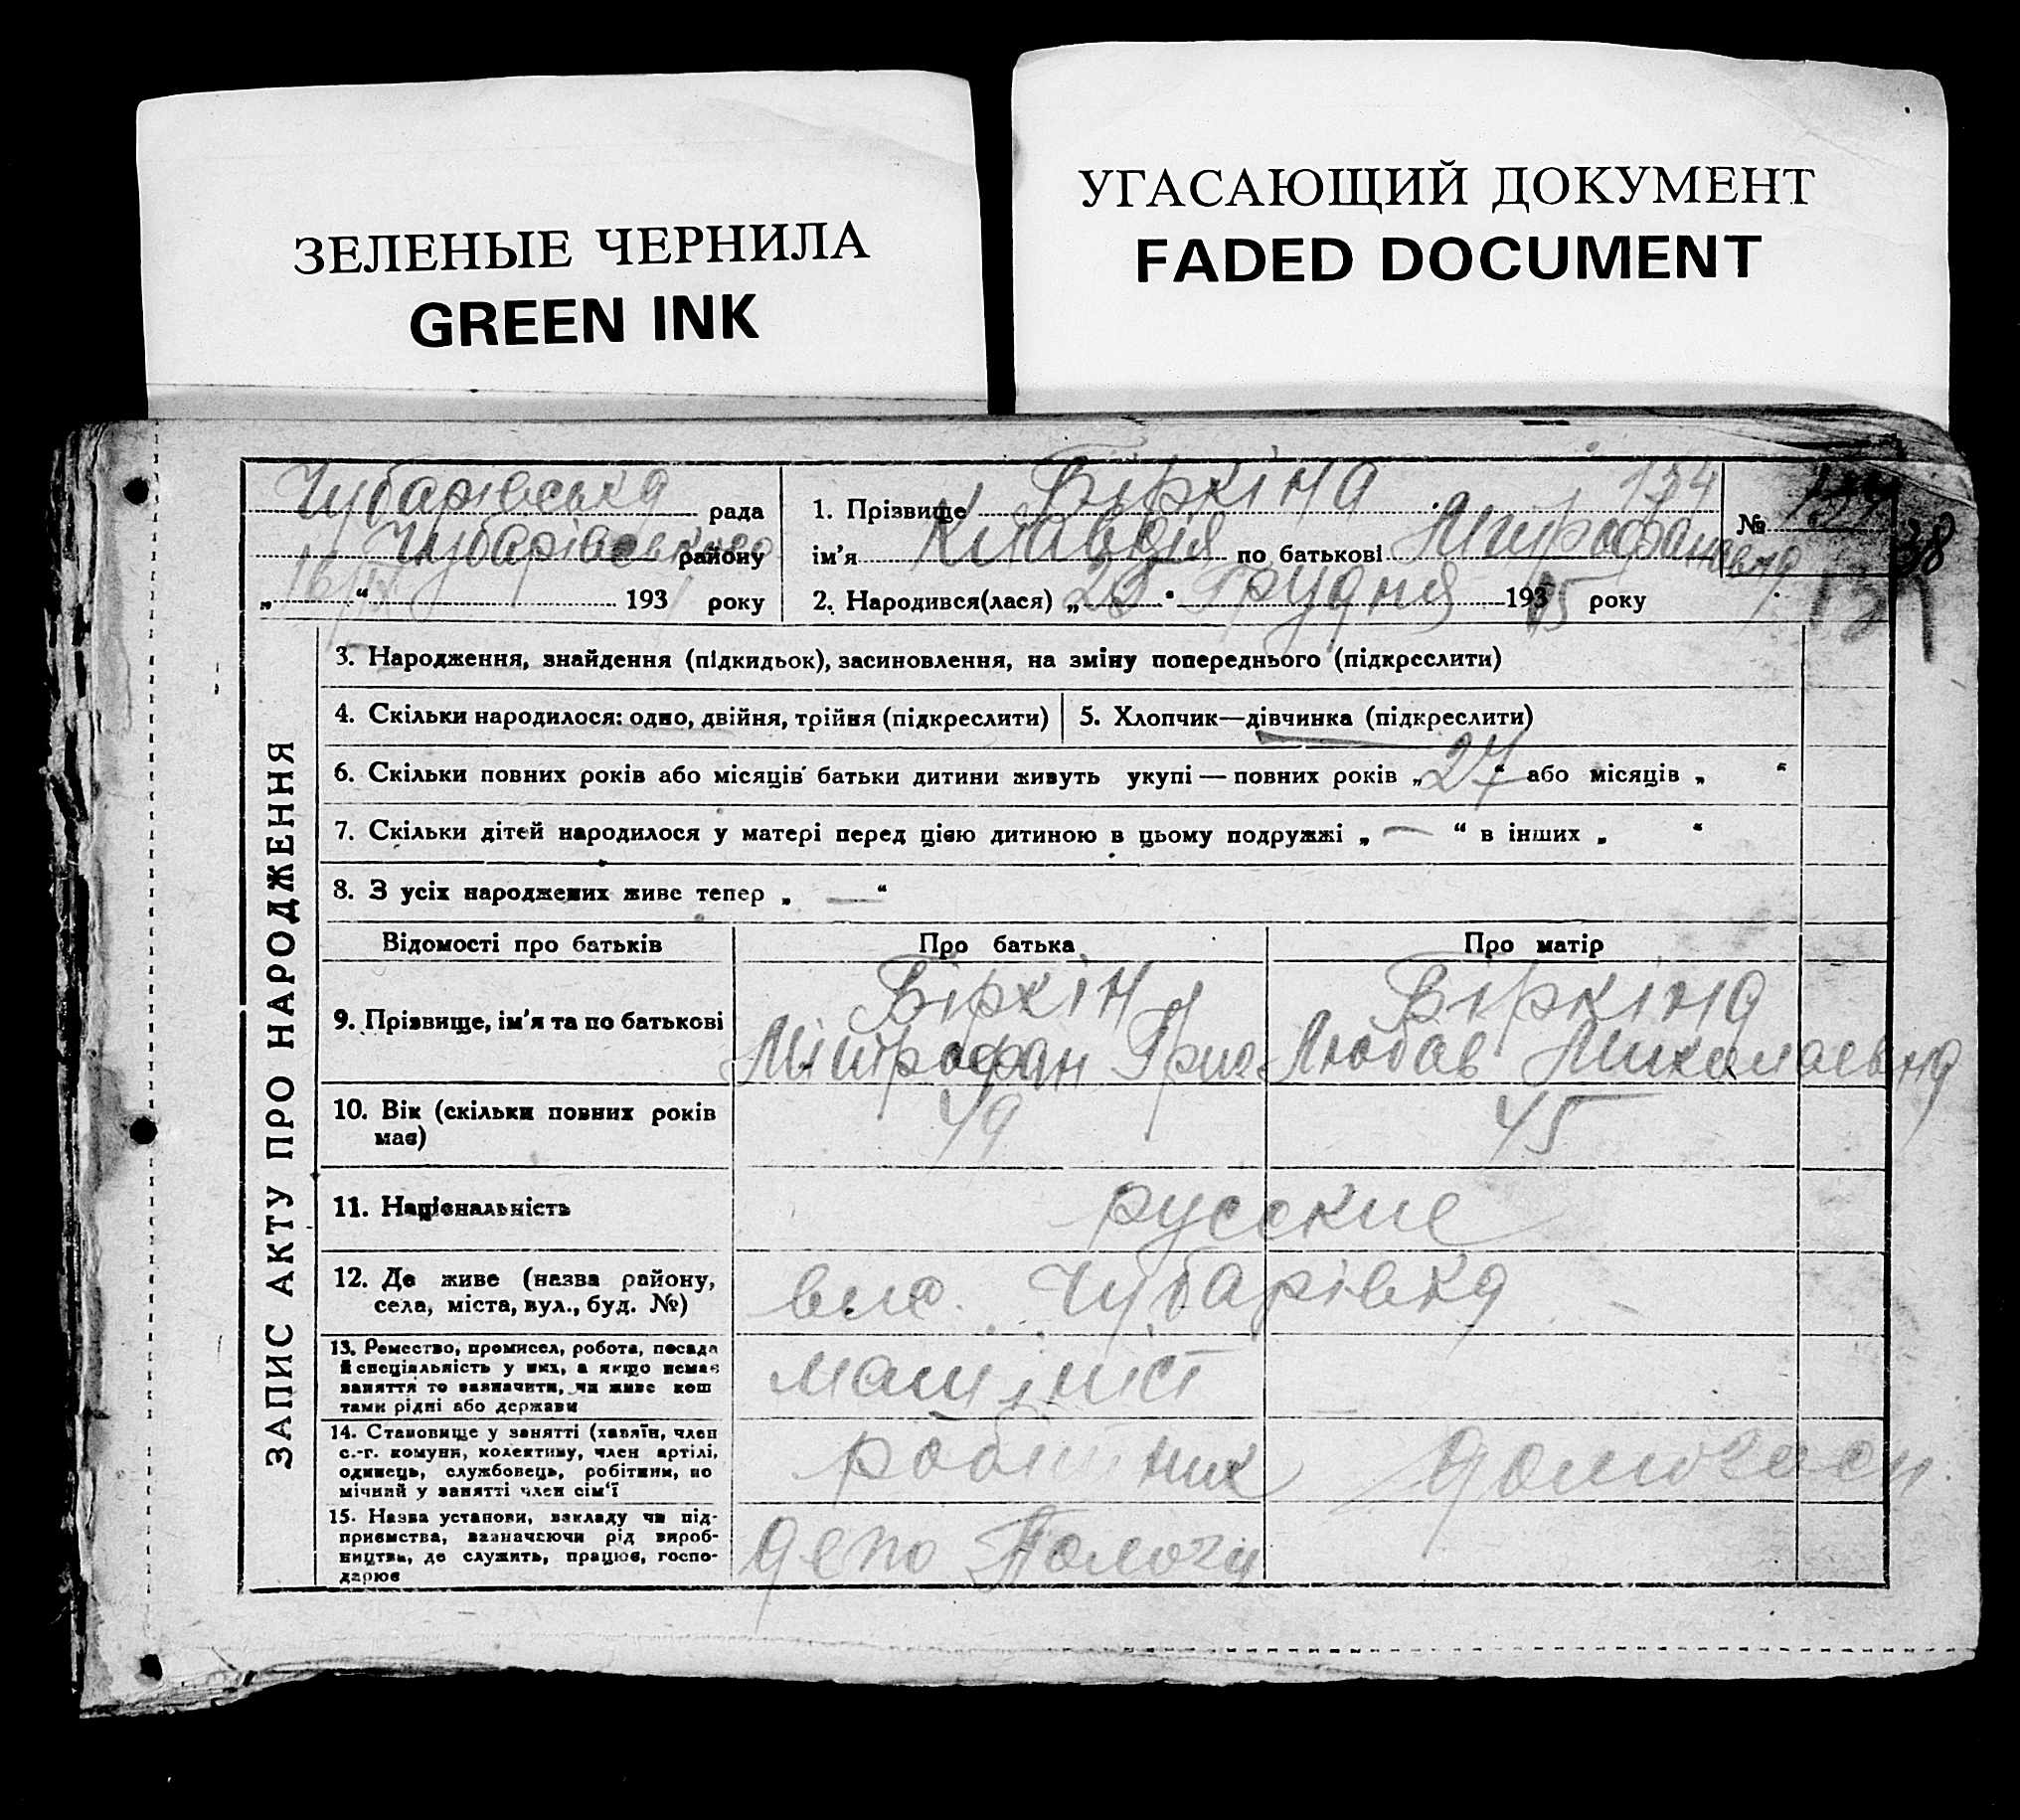 ЗЕЛЕНЫЕ ЧЕРНИЛА
GREEN INK
УГАСАЮЩИЙ ДОКУМЕНТ
FADED DOCUMENT
Чубарівська рада
Чубарівського району
„ “ 193 року
1. Прізвище Біркіна 134
ім'я Клавдія по батькові Митрофанівна
2. Народився(лася) „ “ Грудня 193 15 року
№
38
ЗАПИС АКТУ ПРО НАРОДЖЕННЯ
3. Народження, знайдення (підкидьок), засиновлення, на зміну попереднього (підкреслити)
4. Скільки народилося: одно, двійня, трійня (підкреслити)
5. Хлопчик—дівчинка (підкреслити)
6. Скільки повних років або місяців батьки дитини живуть укупі — повних років „27“ або місяців „ “
7. Скільки дітей народилося у матері перед цією дитиною в цьому подружжі „ — “ в інших „ “
8. З усіх народжених живе тепер „ — “
Відомості про батьків Про батька Про матір
9. Прізвище, ім'я та по батькові
Біркін
Мітрофан Григ
Біркіна
Любов Михолаевна
10. Вік (скільки повних років
має)
49
45
11. Національність
русские
12. Де живе (назва району,
села, міста, вул., буд. №)
Чубарівка
13. Ремество, промисел, робота, посада
й спеціяльність у них, а якщо немає
заняття то зазначити, чи живе кош
тами рідні або держави
машініст
14. Становище у занятті (хазяїн, член
с.-г. комуни, колективу, член артілі,
одинець, службовець, робітник, по
мічний у занятті член сім'ї
робітник
домогосп.
15. Назва установи, закладу чи під-
приємства, зазначаючи рід вироб-
ництва, де служить, працює, госпо-
дарює
депо Пологи